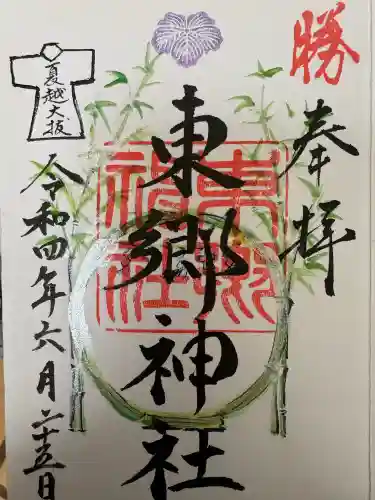 勝
奉拝
東郷神社
東郷
神社
夏越大祓
令和四年六月二十五日